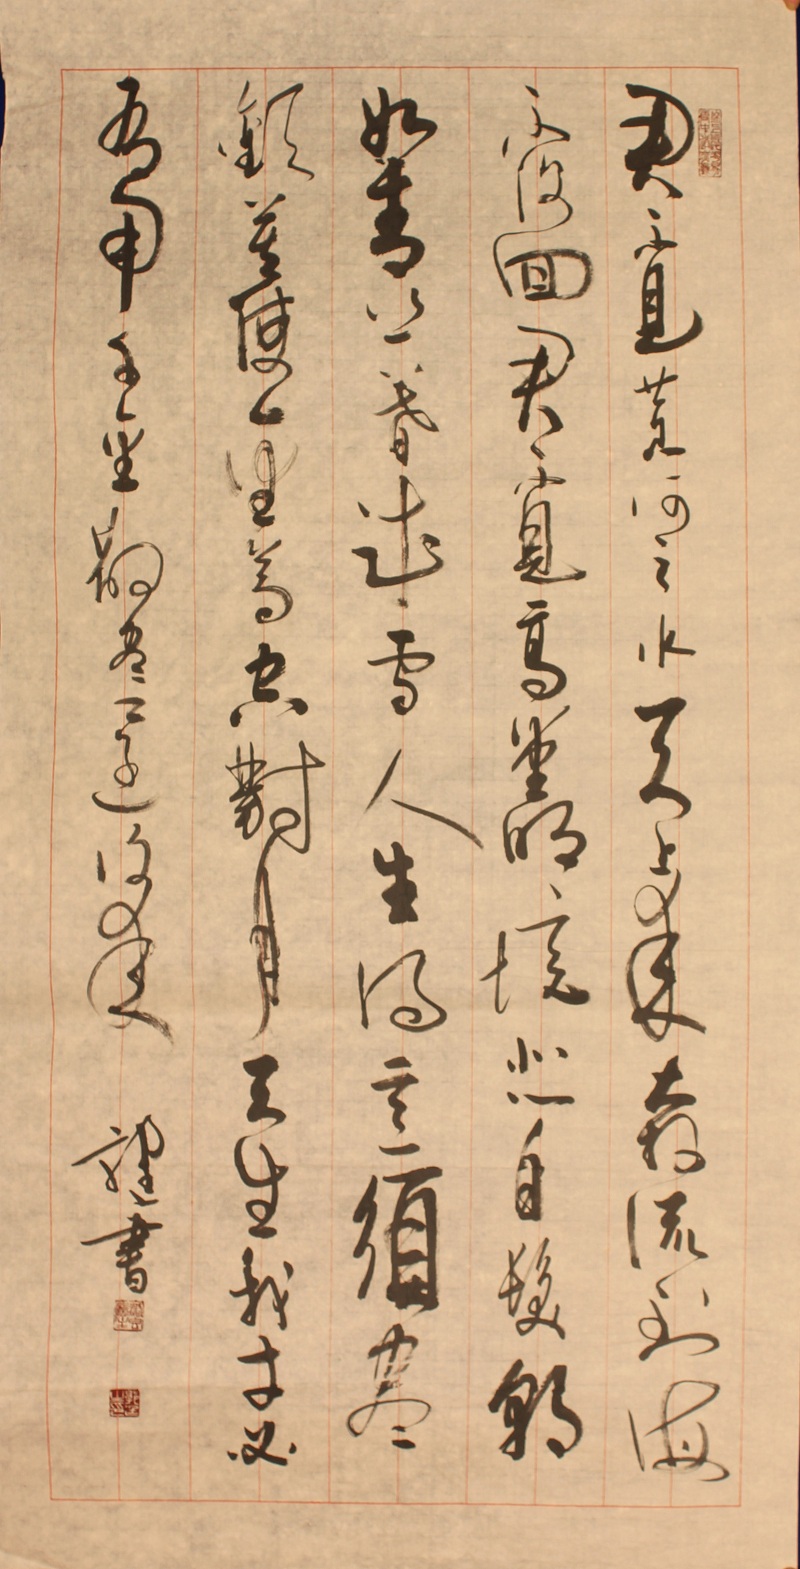 君不見黄河之水天上來奔流到海
不復回君不見高堂明鏡悲白髮朝
如青絲暮成雪人生得意須盡
歡莫使金尊空對月天生我才必
有用千金散盡還復來
書